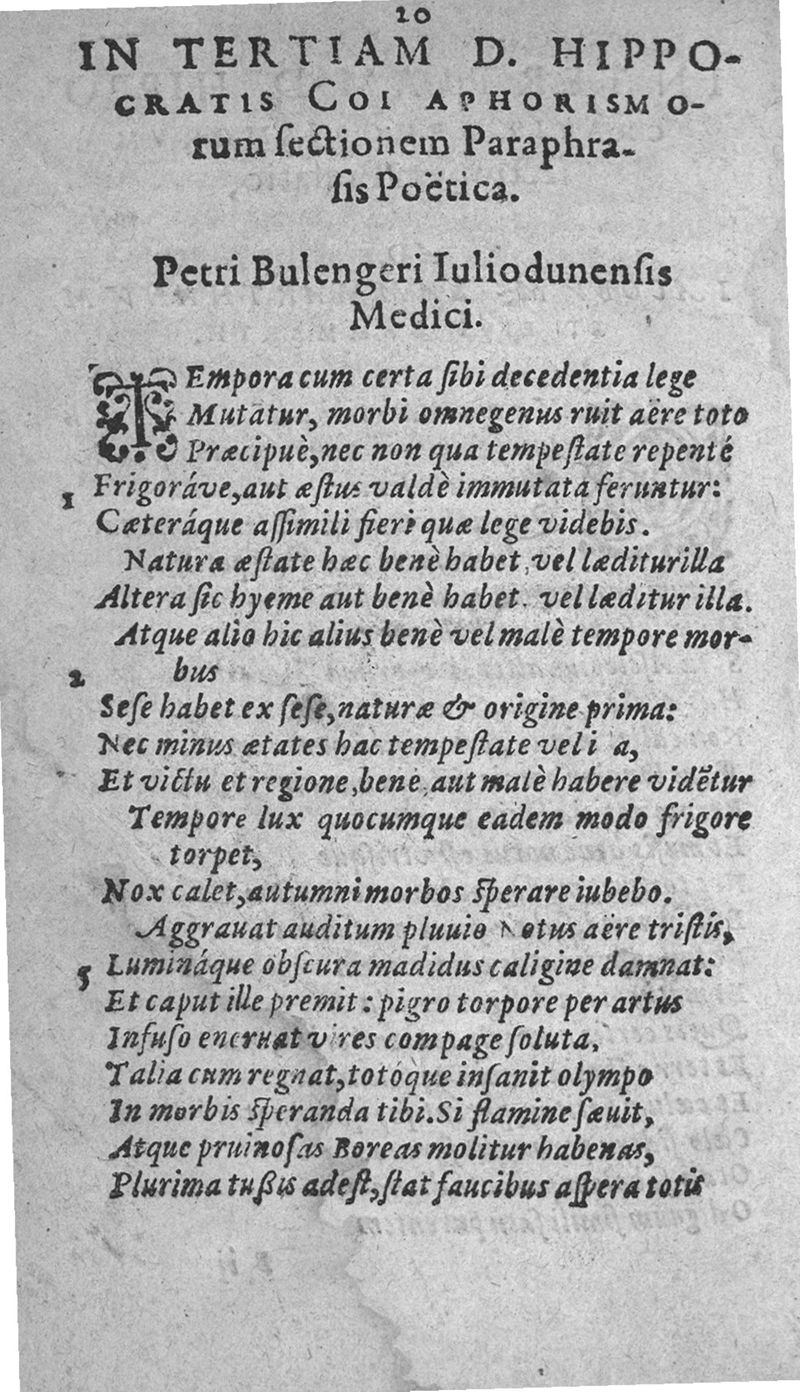 20
IN TERTIAM D. HIPPO-
CRATIS COI APHORISMO-
rum ſectionem Paraphra-
ſis Poëtica.
Petri Bulengeri Iuliodunenſis
Medici.
TEmpora cum certa ſibi decedentia lege
Mutãtur, morbi omnegenus ruit aëre toto
Præcipuè, nec non qua tempeſtate repenté
1 Frigoráve, aut æſtus valdè immutata feruntur:
Cæteráque aſſimili fieri quæ lege videbis.
Natura æſtate hæc benè habet, vel læditur illa
Altera ſic hyeme aut benè habet. vel læditur illa.
Atque alio hic alius benè vel malè tempore mor-
2 bus
Seſe habet ex ſeſe, naturæ & origine prima:
Nec minus ætates hac tempeſtate vel i a,
Et victu et regione, bene, aut malè habere vidẽtur
Tempore lux quocumque eadem modo frigore
torpet,
Nox calet, autumni morbos ſperare iubebo.
Aggrauat auditum pluuio Notus aëre triſtis,
5 Lumináque obſcura madidus caligine damnat:
Et caput ille premit: pigro torpore per artus
Infuſo eneruat vires compage ſoluta,
Talia cum regnat, totóque inſanit olympo
In morbis ſperanda tibi. Si flamine ſæuit,
Atque pruinoſas Boreas molitur habenas,
Plurima tußis adeſt, ſtat faucibus aſpera totis